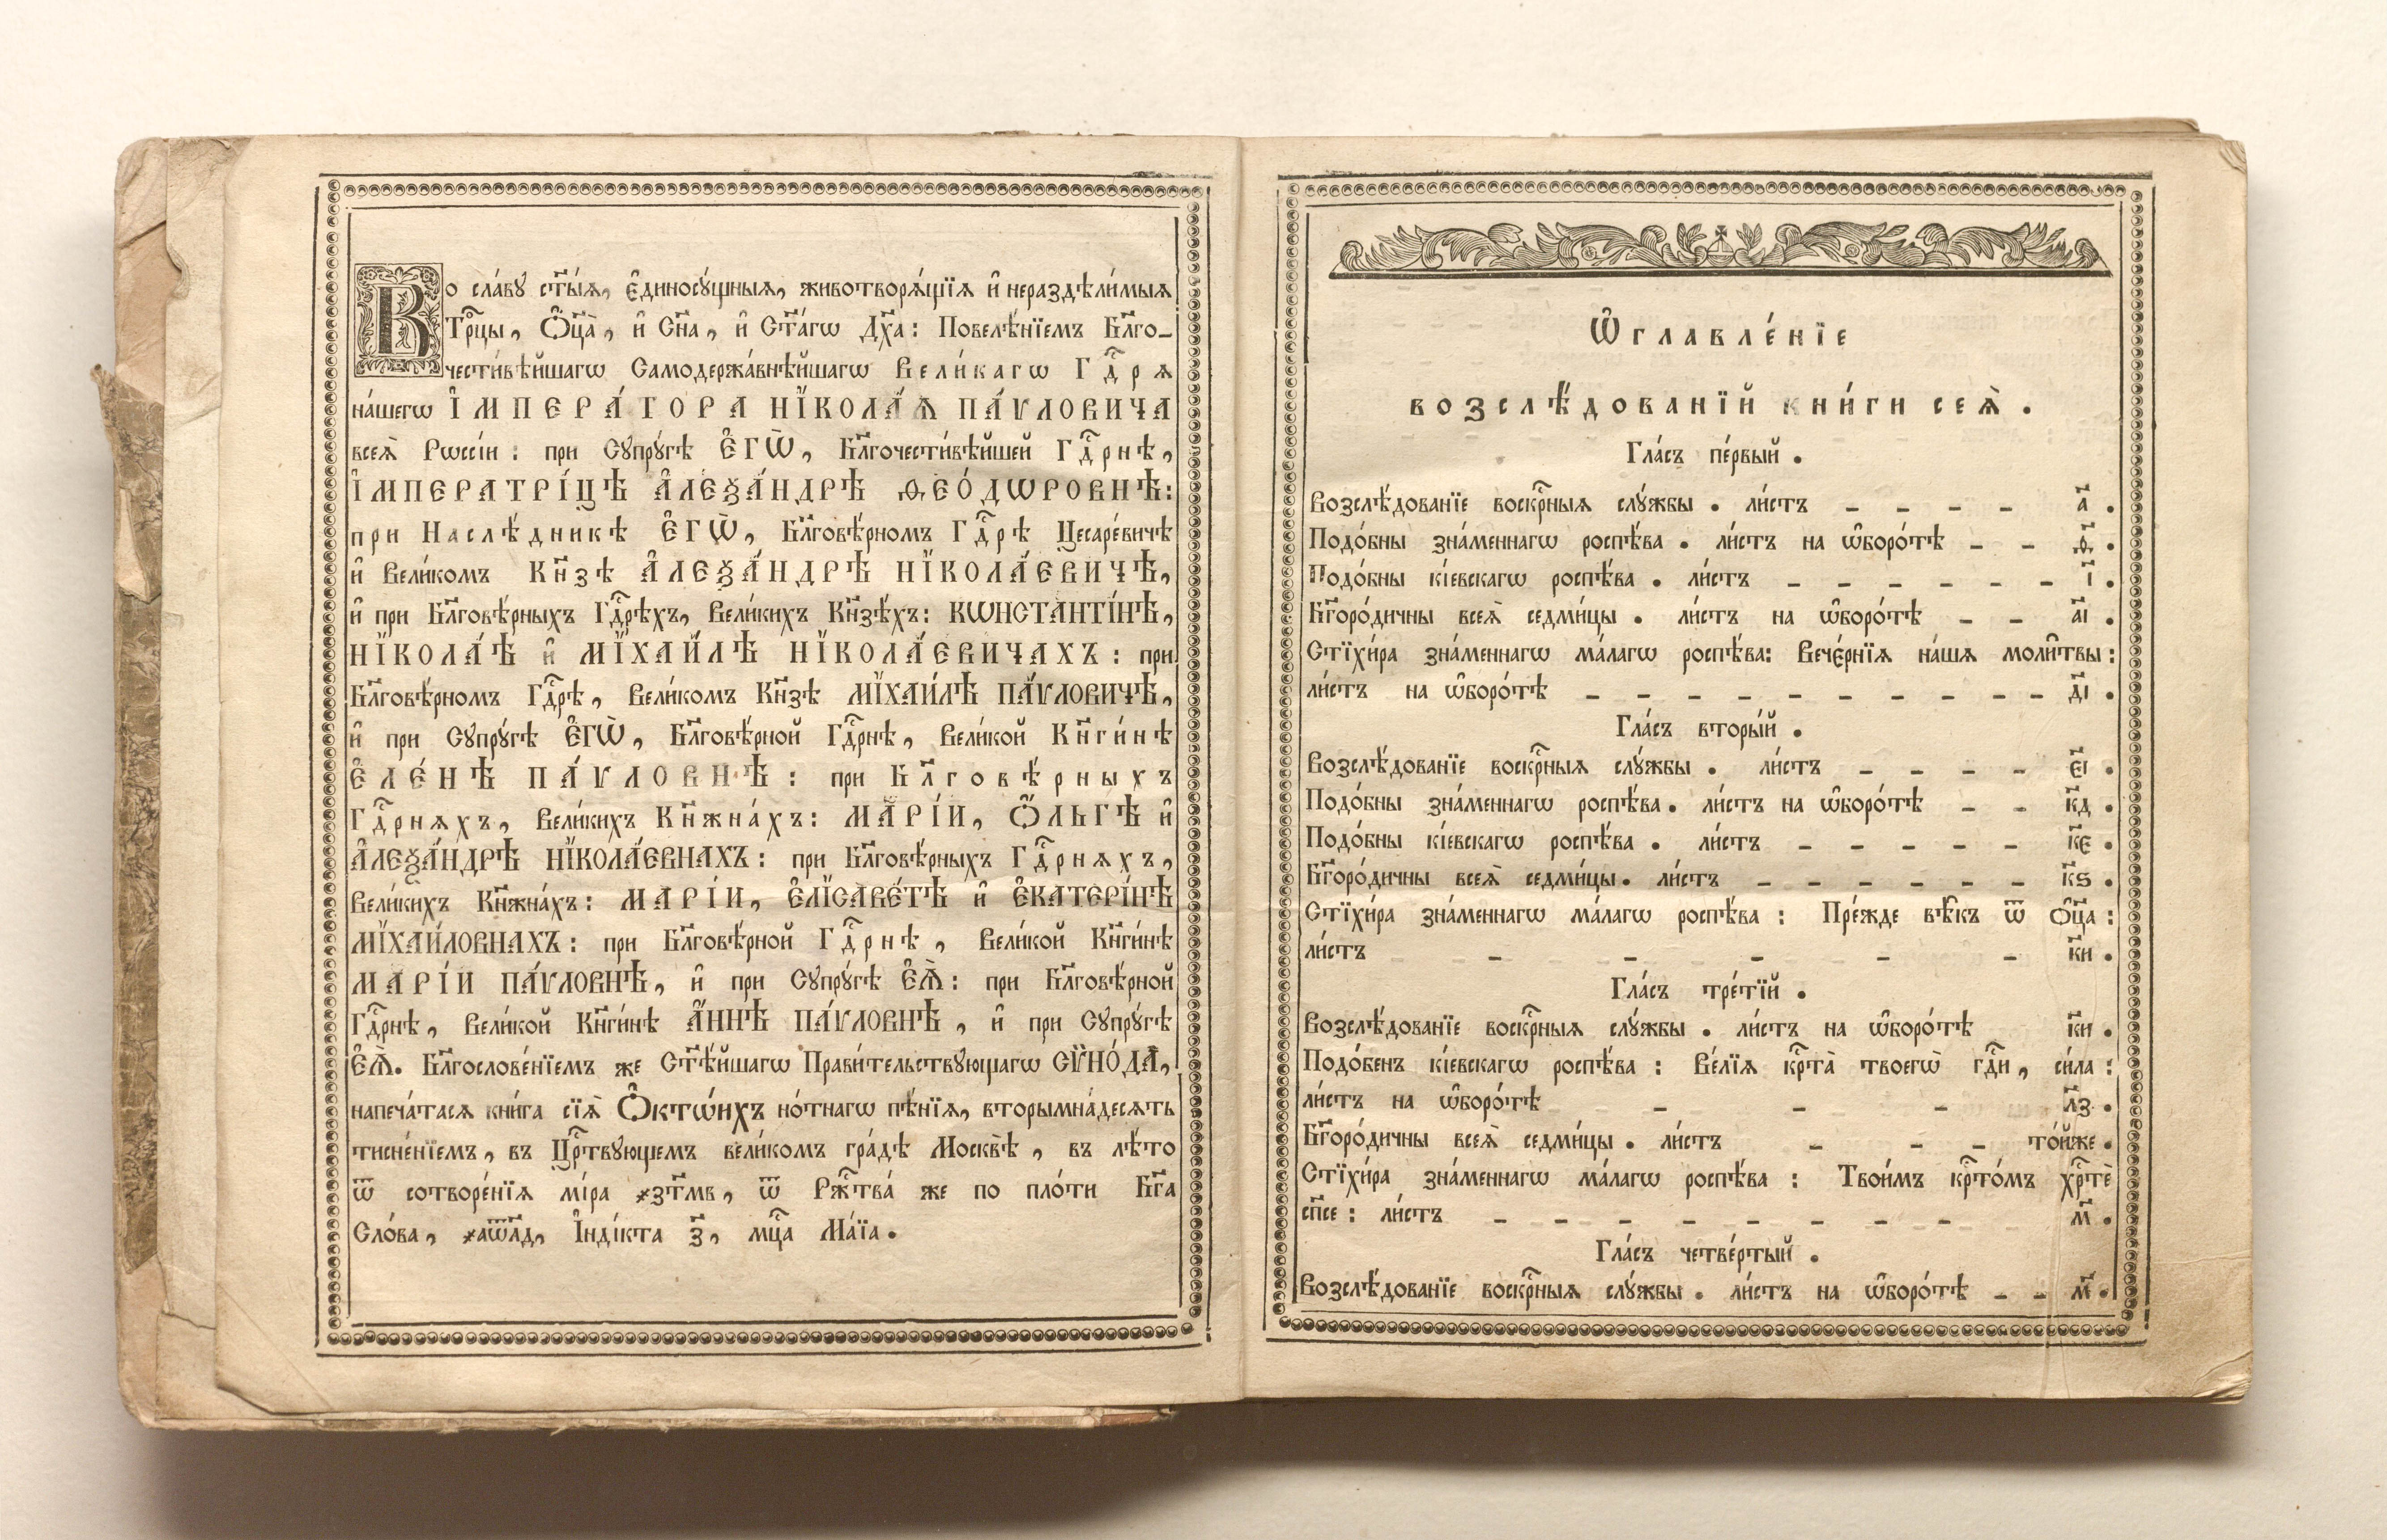 Во сла́вꙋ ст҃ы́ѧ, є҆диносꙋ́щныѧ, животворѧ́щїѧ и҆ нераздѣли́мыѧ
Трⷪ҇цы, Ѻ҆ц҃а̀, и҆ Сн҃а, и҆ Ст҃а́гѡ Дх҃а: Повелѣ́нїемъ Бл҃го-
чести́вѣйшагѡ Самодержа́внѣйшагѡ Вели́кагѡ Гдⷭ҇рѧ
на́шегѡ І҆МПЕРА́ТОРА НЇКОЛА́Ѧ ПА́ѴЛОВИЧА
всеѧ̀ Рѡссі́и: при Сꙋпрꙋ́гѣ Є҆ГѠ̀, Бл҃гочести́вѣйшей Гдⷭ҇рнѣ,
І҆МПЕРАТРІ́ЦѢ А҆ЛЕѮА́НДРѢ ѲЕО́ДѠРОВНѢ:
при Наслѣ́дникѣ Є҆ГѠ̀, Бл҃говѣ́рномъ Гдⷭ҇рѣ Цесаре́вичѣ
и҆ Вели́комъ Кн҃зѣ А҆ЛЕѮА́НДРѢ НЇКОЛА́ЕВИЧѢ,
и҆ при Бл҃говѣ́рныхъ Гдⷭ҇рѣхъ, Вели́кихъ Кн҃зѣ́хъ: КѠНСТАНТІ́НѢ,
НЇКОЛА́Ѣ и҆ МЇХАИ́ЛѢ НЇКОЛА́ЕВИЧАХЪ: при
Бл҃говѣ́рномъ Гдⷭ҇рѣ, Вели́комъ Кн҃зѣ МЇХАИ́ЛѢ ПА́ѴЛОВИЧѢ,
и҆ при Сꙋпрꙋ́гѣ Є҆ГѠ̀, Бл҃говѣ́рной Гдⷭ҇рнѣ, Вели́кой Кн҃ги́нѣ
Є҆ЛЕ́НѢ ПА́ѴЛОВНѢ: при Бл҃говѣ́рныхъ
Гдⷭ҇рнѧхъ, Вели́кихъ Кн҃жна́хъ: МАРІ́И, Ѻ҆́ЛЬГѢ и҆
А҆ЛЕѮА́НДРѢ НЇКОЛА́ЕВНАХЪ: при Бл҃говѣ́рныхъ Гдⷭ҇рнѧхъ,
Вели́кихъ Кн҃жна́хъ: МАРІ́И, Є҆ЛЇСАВЕ́ТѢ и҆ Є҆КАТЕРІ́НѢ
МЇХАИ́ЛОВНАХЪ: при Бл҃говѣ́рной Гдⷭ҇рнѣ, Вели́кой Кн҃ги́нѣ
МАРІ́И ПА́ѴЛОВНѢ, и҆ при Сꙋпрꙋ́гѣ Є҆Ѧ̀: при Бл҃говѣ́рной
Гдⷭ҇рнѣ, Вели́кой Кн҃ги́нѣ А҆́ННѢ ПА́ѴЛОВНѢ, и҆ при Сꙋпрꙋ́гѣ
Є҆Ѧ̀. Бл҃гослове́нїемъ же Ст҃ѣ́йшагѡ Прави́тельствꙋющагѡ СѴНО́ДА,
напеча́тасѧ кни́га сїѧ̀ Ѻ҆ктѡ́ихъ но́тнагѡ пѣ́нїѧ, вторымна́десѧть
тисне́нїемъ, въ Црⷭ҇твꙋющемъ вели́комъ гра́дѣ Москвѣ̀, въ лѣ́то
ѿ сотворе́нїѧ мі́ра ҂зт҃мв, ѿ Рж҃тва́ же по пло́ти Бг҃а
Сло́ва, ҂аѿл҃д, І҆нді́кта з҃, мцⷭ҇а Ма́їа.
Ѡ҆главле́нїе
возслѣ́дованїй кни́ги сеѧ̀.
Гла́съ пе́рвый.
Возслѣ́дованїе воскрⷭ҇ныѧ слꙋ́жбы. ли́стъ - - - - а҃.
Подо́бны зна́меннагѡ роспѣ́ва. ли́стъ на ѡ҆боро́тѣ - - ѳ҃.
Подо́бны кі́евскагѡ роспѣ́ва. ли́стъ - - - - - - і҃.
Бг҃оро́дичны всеѧ̀ седми́цы. ли́стъ на ѡ҆боро́тѣ - - а҃і.
Стїхи́ра зна́меннагѡ ма́лагѡ роспѣ́ва: Вече́рнїѧ на́шѧ моли̑твы:
ли́стъ на ѡ҆боро́тѣ - - - - - - - - - - д҃і.
Гла́съ вторы́й.
Возслѣ́дованїе воскрⷭ҇ныѧ слꙋ́жбы. ли́стъ - - - - є҃і.
Подо́бны зна́меннагѡ роспѣ́ва. ли́стъ на ѡ҆боро́тѣ - - к҃д.
Подо́бны кі́евскагѡ роспѣ́ва. ли́стъ - - - - - к҃є.
Бг҃оро́дичны всеѧ̀ седми́цы. ли́стъ - - - - - - к҃ѕ.
Стїхи́ра зна́меннагѡ ма́лагѡ роспѣ́ва: Пре́жде вѣ̑къ ѿ Ѻ҆ц҃а:
ли́стъ - - - - - к҃и.
Гла́съ тре́тїй.
Возслѣ́дованїе воскрⷭ҇ныѧ слꙋ́жбы. ли́стъ на ѡ҆боро́тѣ к҃и.
Подо́бенъ кі́евскагѡ роспѣ́ва: Ве́лїѧ крⷭ҇та̀ твоегѡ̀ гдⷭ҇и, си́ла:
ли́стъ на ѡ҆боро́тѣ - - - л҃з.
Бг҃оро́дичны всеѧ̀ седми́цы. ли́стъ - - - то́йже.
Стїхи́ра зна́меннагѡ ма́лагѡ роспѣ́ва: Твои́мъ крⷭ҇то́мъ хрⷭ҇тѐ
сп҃се: ли́стъ - - - - - - - - м҃.
Гла́съ четве́ртый.
Возслѣ́дованїе воскрⷭ҇ныѧ слꙋ́жбы. ли́стъ на ѡ҆боро́тѣ - - м҃.